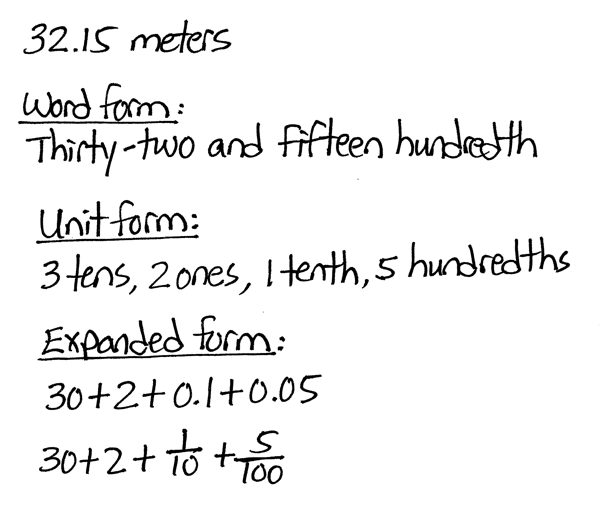 32.15 meters
Word form:
Thirty-two and fifteen hundredth
Unit form:
3 tens, 2 ones, 1 tenth, 5 hundredths
Expanded form:
30+2+0.1+0.05
30+2+1/10+5/100